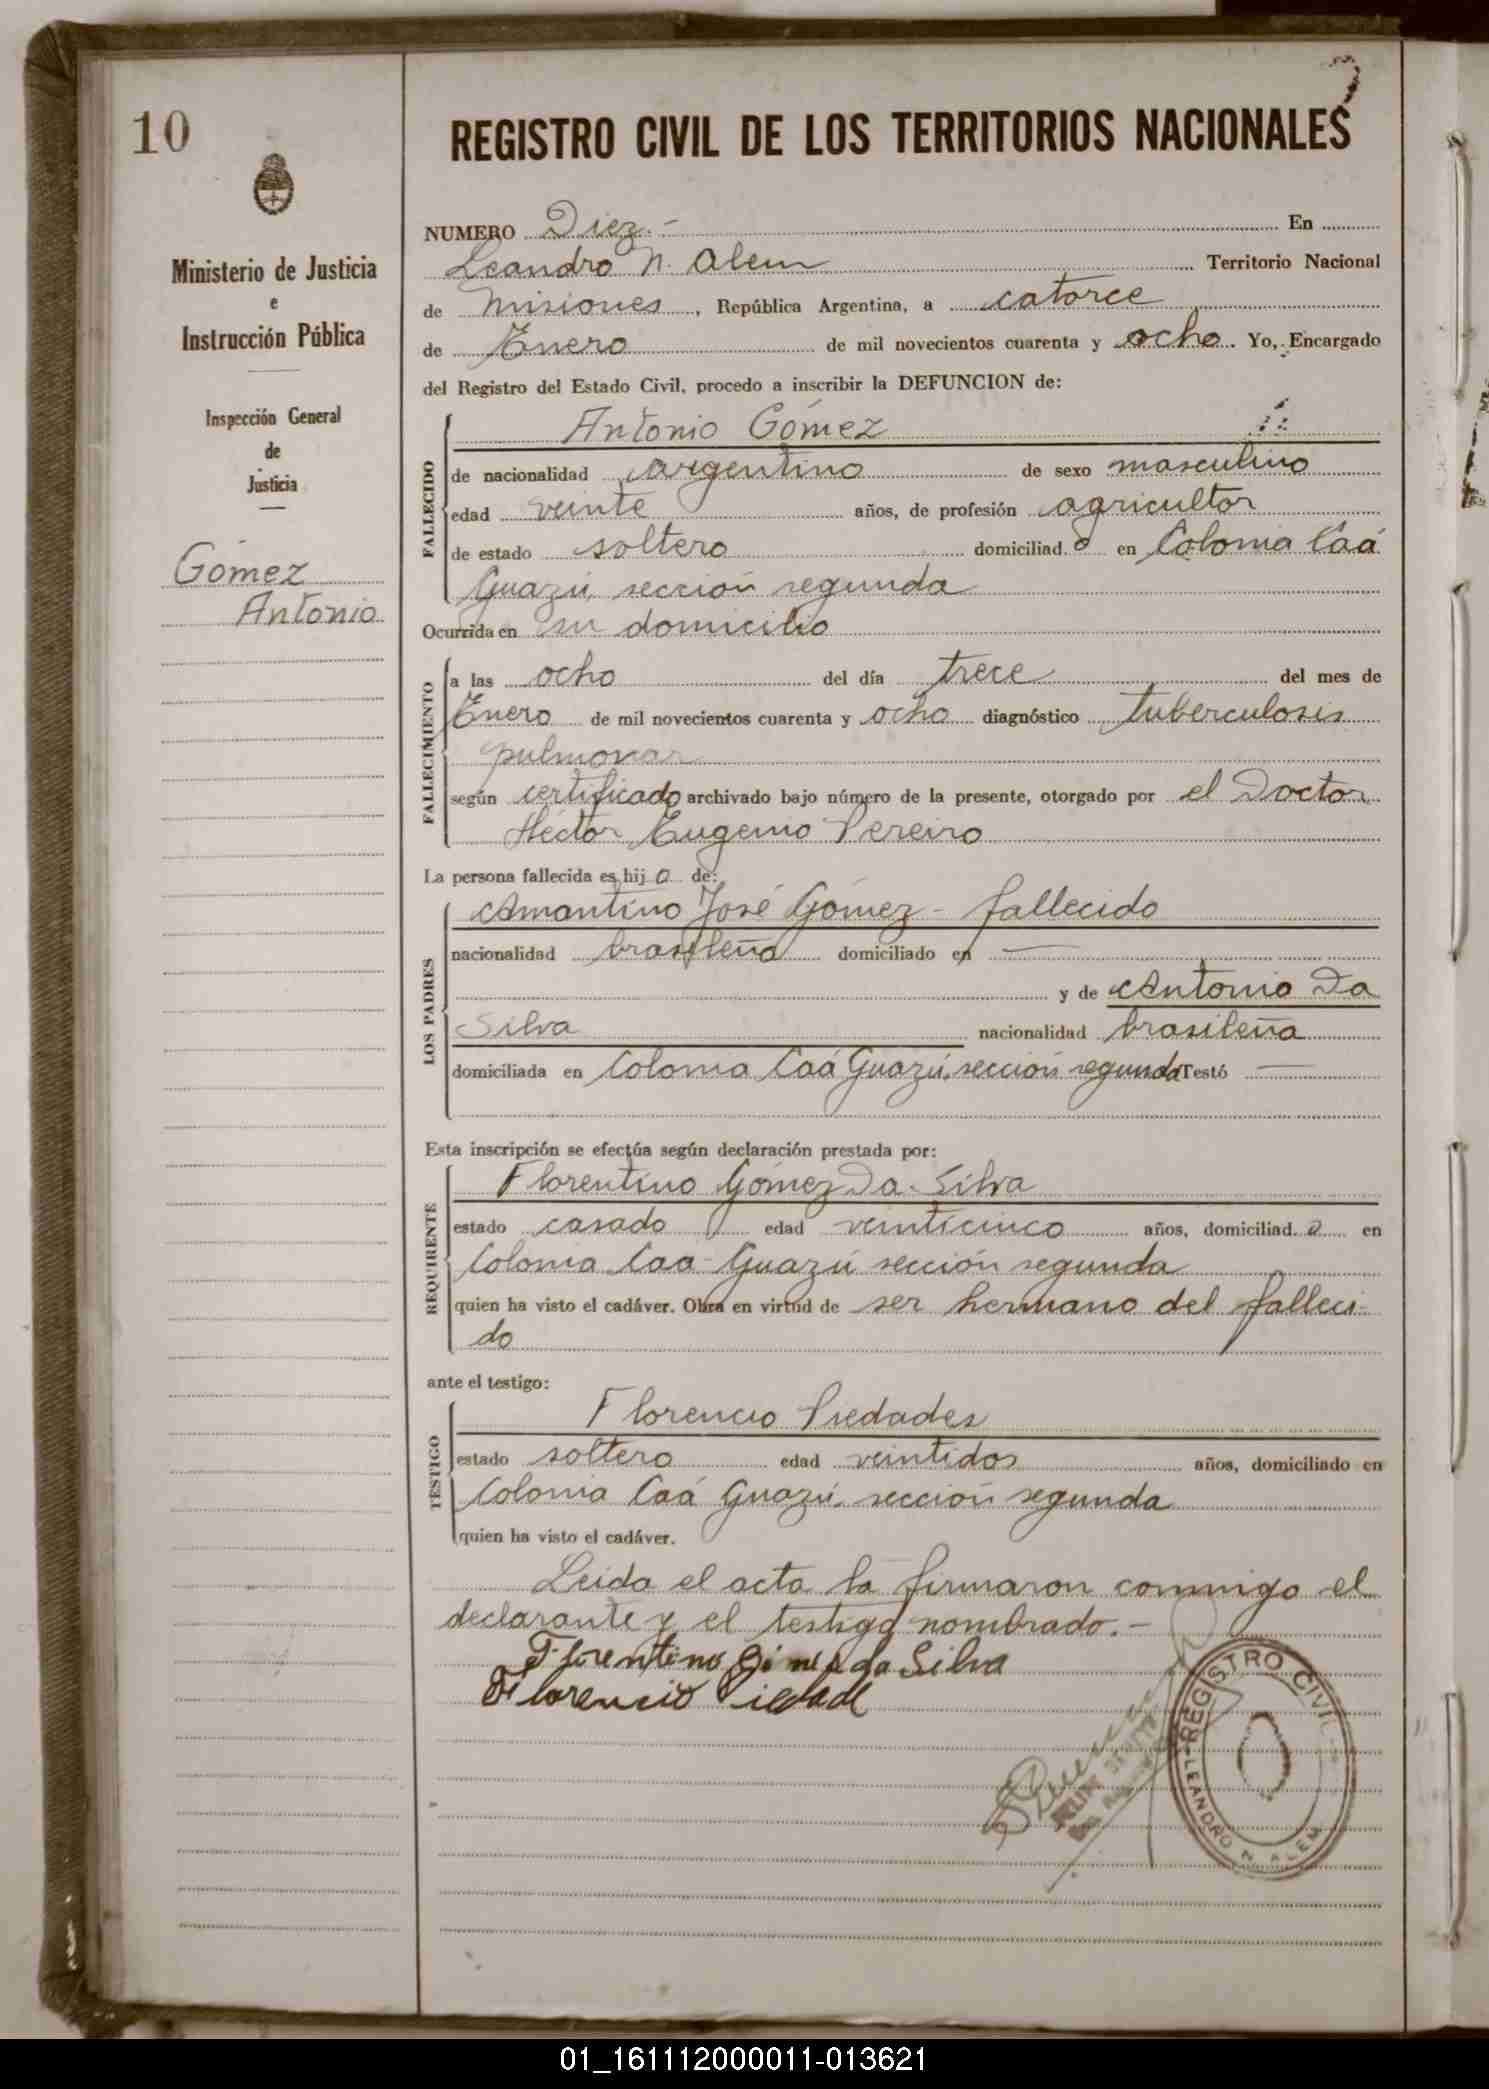 10
Ministerio de Justicia
e
Instrucción Pública
Inspección General
de
Justicia
Gómez
Antonio
REGISTRO CIVIL DE LOS TERRITORIOS NACIONALES
NUMERO Diez.- En
Leandro N. Alem Territorio Nacional
de Misiones, República Argentina, a catorce
de Enero de mil novecientos cuarenta y ocho. Yo, Encargado
del Registro del Estado Civil, procedo a inscribir la DEFUNCION de:
FALLECIDO
Antonio Gómez
de nacionalidad argentino de sexo masculino
edad veinte años, de profesión agricultor
de estado soltero domiciliad o en Colonia Caá
Guazú, sección segunda
Ocurrida en su domicilio
FALLECIMIENTO
a las ocho del día trece del mes de
Enero de mil novecientos cuarenta y ocho diagnóstico tuberculosis
pulmonar
según certificado archivado bajo número de la presente, otorgado por el Doctor
Héctor Eugenio Pereiro
La persona fallecida es hij o de:
LOS PADRES
Amantino José Gómez - fallecido
nacionalidad brasileña domiciliado en —
y de Antonia Da
Silva nacionalidad brasileña
domiciliada en Colonia Caá Guazú, sección segunda Testó —
Esta inscripción se efectúa según declaración prestada por:
REQUIRENTE
Florentino Gómez Da Silva
estado casado edad veinticinco años, domiciliad o en
Colonia Caa Guazú sección segunda
quien ha visto el cadáver. Obra en virtud de ser hermano del falleci-
do
ante el testigo:
TESTIGO
Florencio Piedades
estado soltero edad veintidos años, domiciliado en
Colonia Caá Guazú, sección segunda
quien ha visto el cadáver.
Leída el acta la firmaron conmigo el
declarante y el testigo nombrado.-
Florentino Gimes da Silva
Florencio Piedade
REGISTRO CIVIL
LEANDRO N. ALEM
01_161112000011-013621